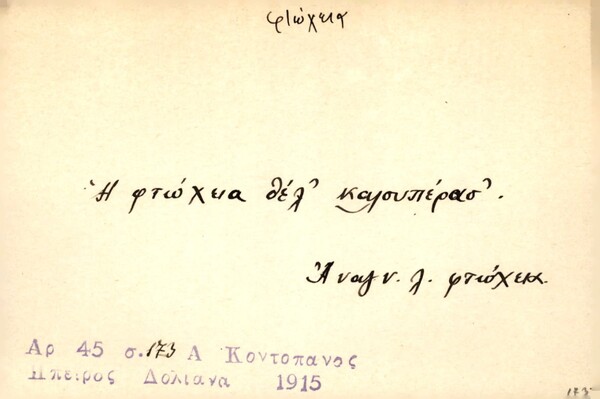 φτώχεια
Ἡ φτώχεια θέλ' καλουπέρασ'.
Ἀναγν. λ. φτώχεια.
Αρ 45 σ. 173 Α Κοντοπανος
Ηπειρος Δολιανα 1915
173